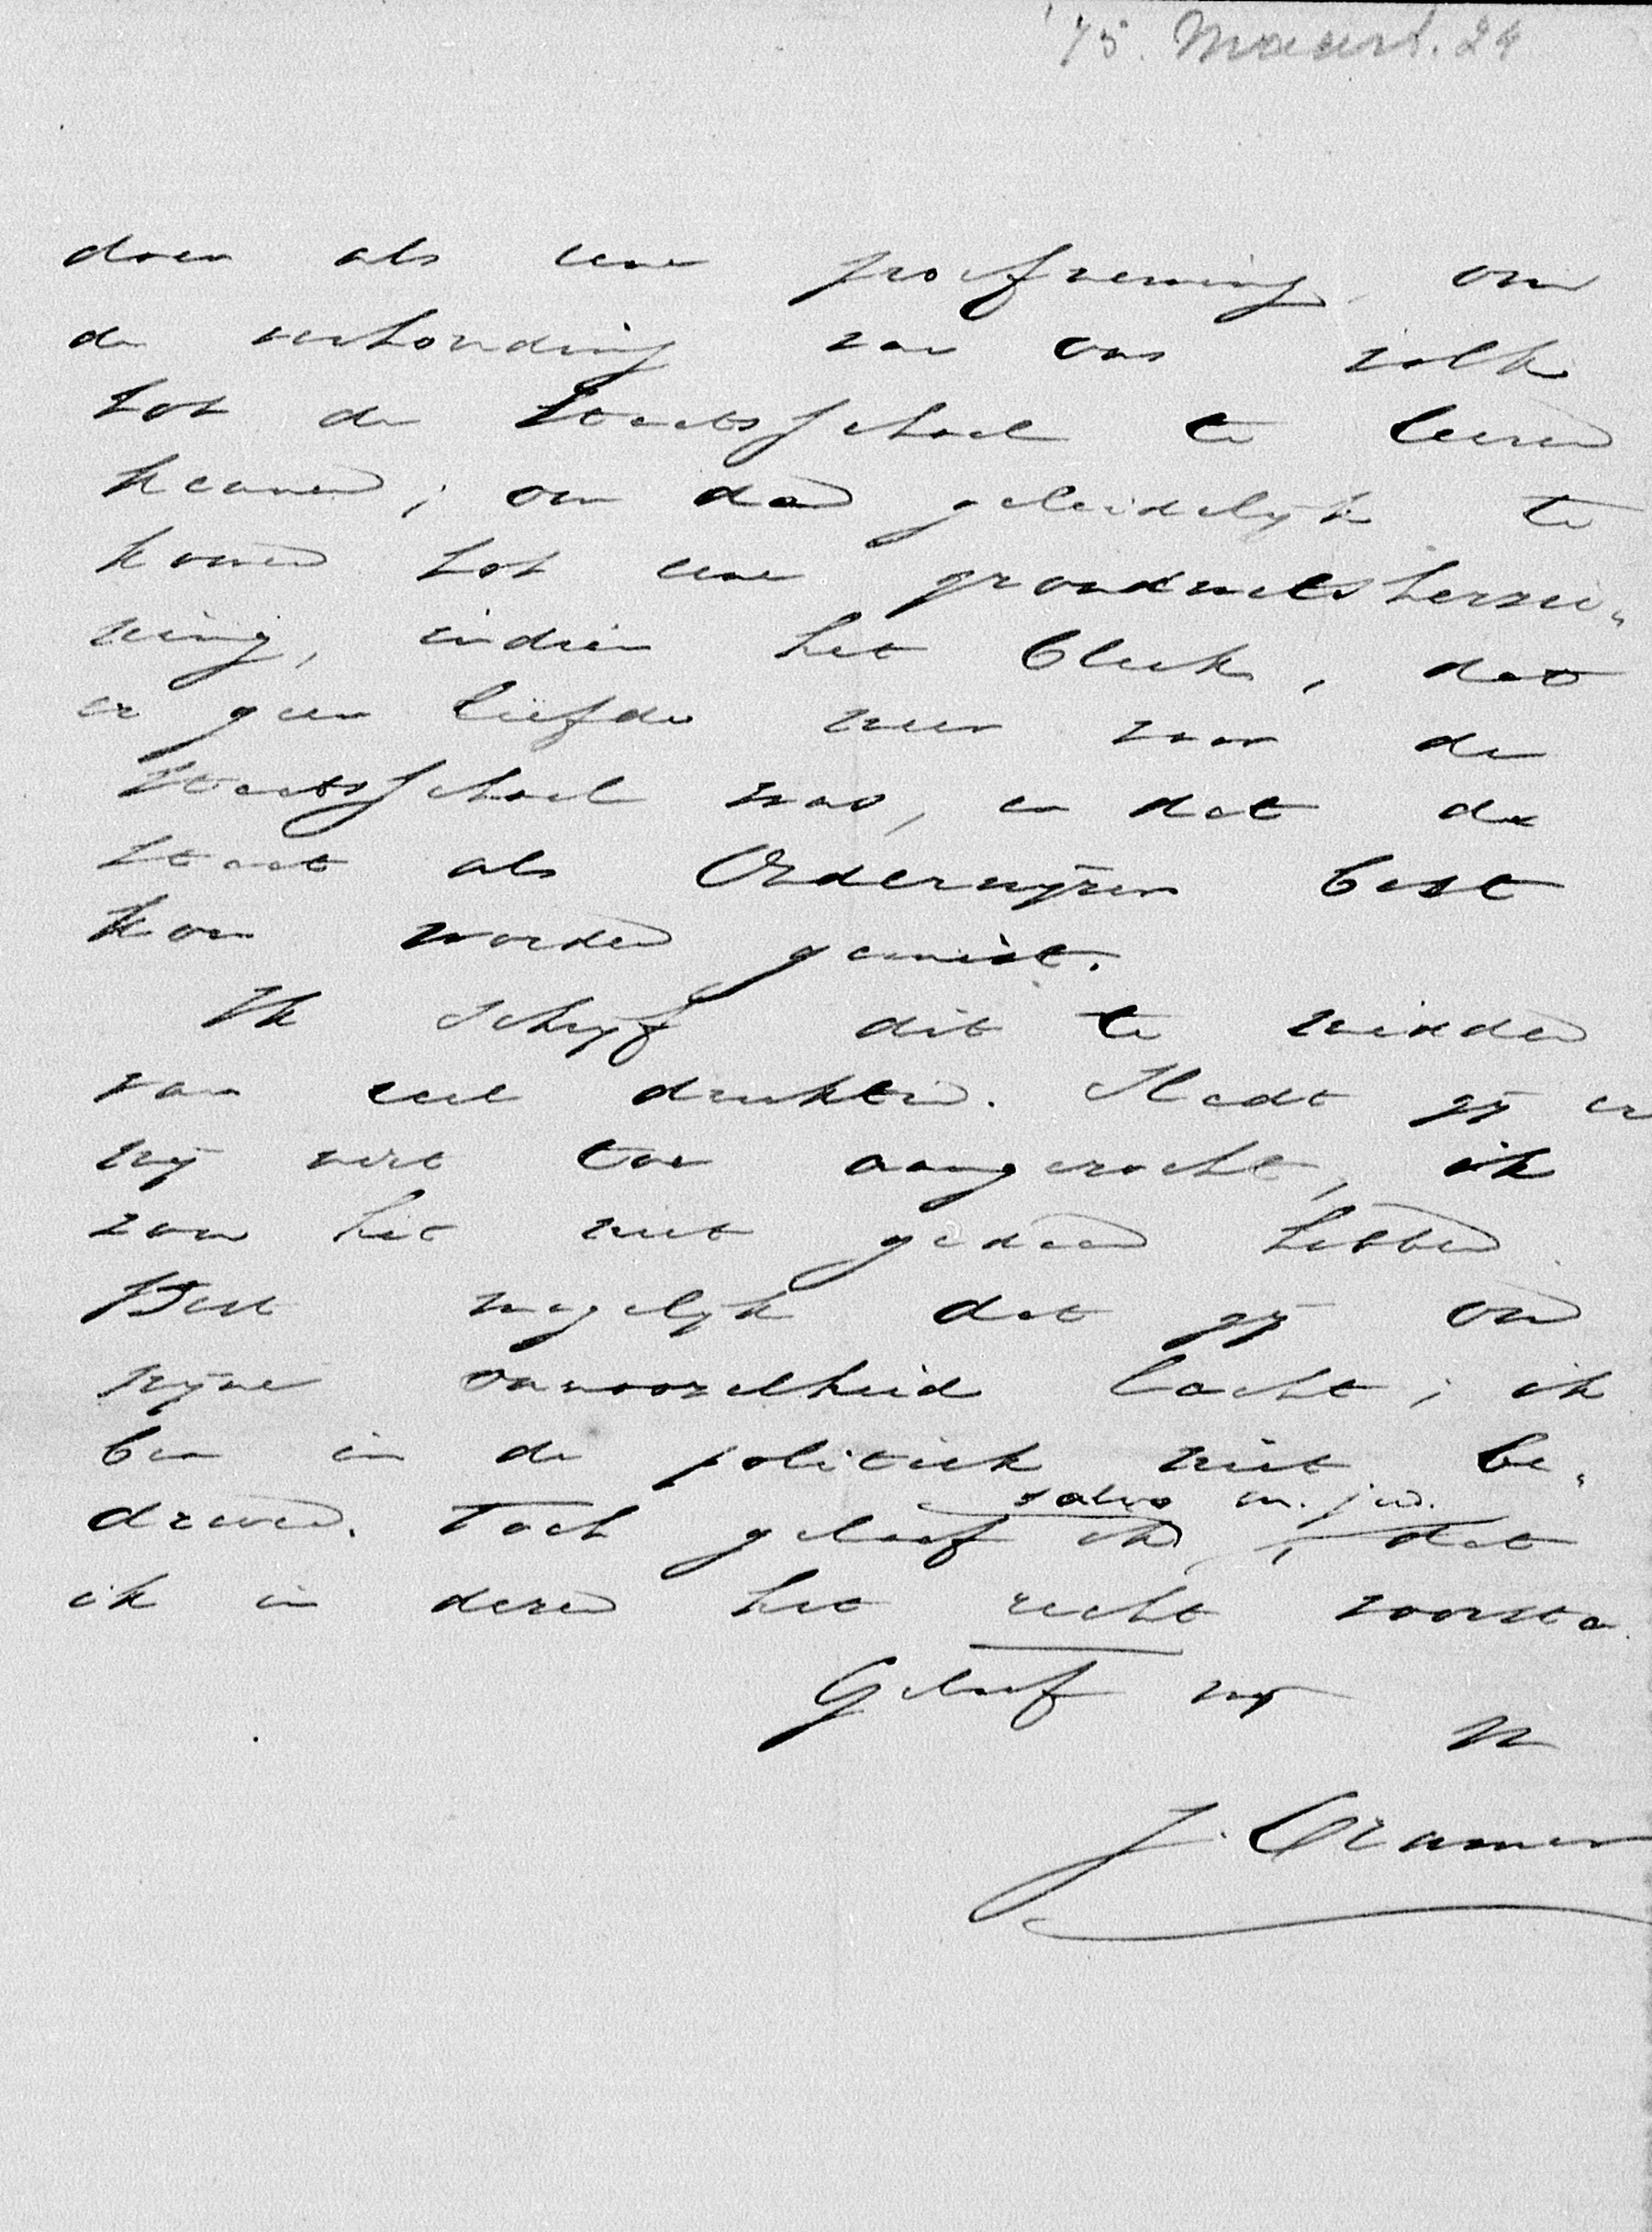 '75. Maart. 24
doen als eene proefneming om
de verhouding van ons volk
tot de Staatsschool te leeren
kennen; om dan geleidelijk te
komen tot eene grondwetsherzie„
ning, indien het bleek, dat
er geen liefde meer voor de
Staatsschool was, en dat de
Staat als Onderwijzer best
kon worden gemist.
Ik schrijf dit te midden
van veel drukten. Hadt gij er
mij niet toe aangezocht, ik
zou het niet gedaan hebben.
Best mogelijk dat gij om
mijne onnoozelheid lacht; ik
ben in de politiek niet be„
dreven. Toch geloof ik, salvo m. jud., dat
ik in dezen het recht voorsta.
Geloof mij
J. Cramer